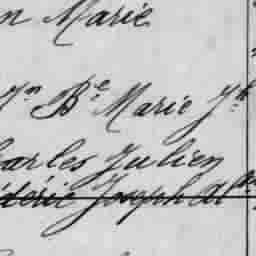 n Marie
Jn Bte Marie Jh
harles Julien
édéric Joseph Al